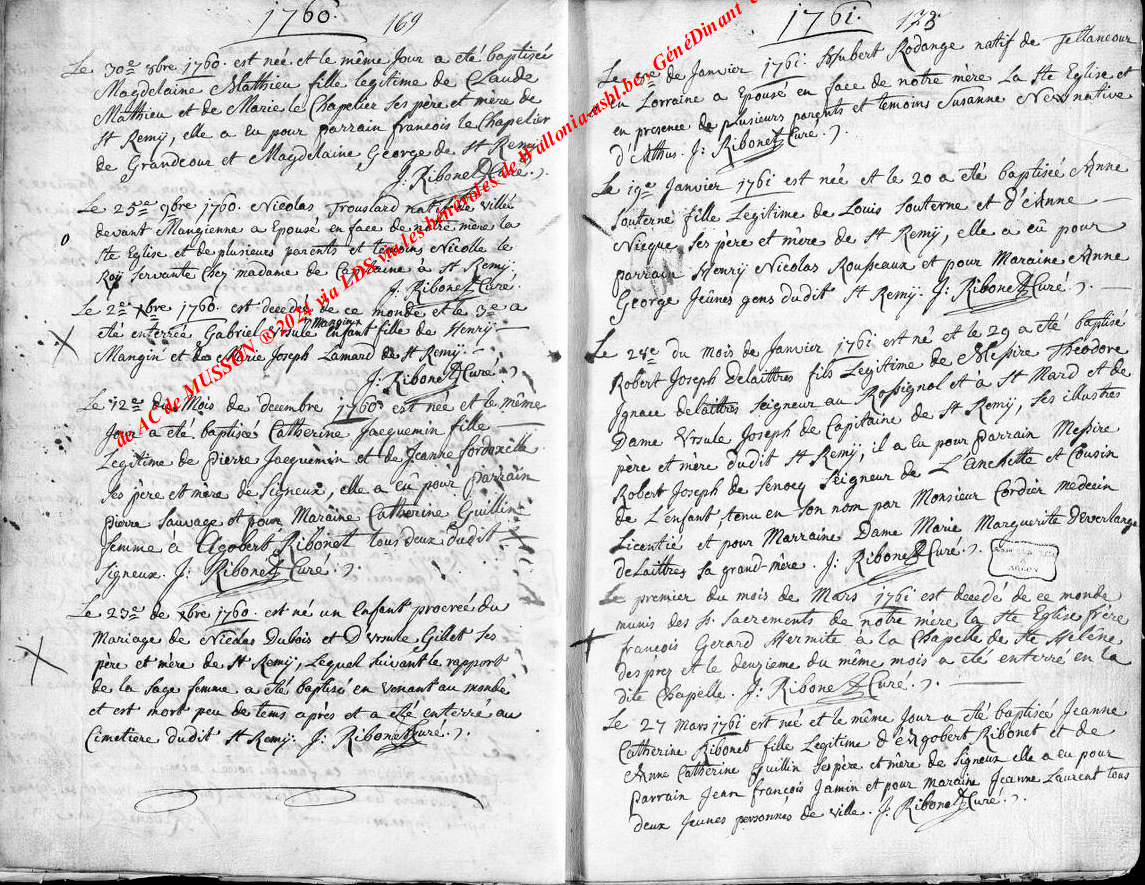 1760.
169
Le 30e 8bre 1760. est née et le même Jour a été baptisée
Magdelaine Mathieu fille legitime de Claude
Mathieu et de Marie le Chapelier ses père et mère de
St Remij, elle a eu pour parrain francois le Chapelier
de Grandcour et Magdelaine George de St Remij
J: Ribonet Curé.
Le 25e 9bre 1760. Nicolas Trouslard natif de ville
devant Mangienne a Epousé en face de notre mère la
Ste Eglise et de plusieurs parents et temoins Nicolle le
Roij servante chez madame de Capitaine à St Remij.
J: Ribonet Curé.
Le 2e xbre 1760. est decedée de ce monde et le 3e a
été enterrée Gabriel Ursule Mangin Enfant fille de Henrij
Mangin et de Marie Joseph Lamard de St Remij.
J: Ribonet Curé.
Le 12e du Mois de decembre 1760 est née et le même
Jour a été baptisée Catherine Jacquemin fille
Legitime de pierre Jacquemin et de Jeanne
ses père et mère de Signeux, elle a eu pour parrain
pierre Sauvage et pour Maraine Catherine Guillin
femme à Agobert Ribonet tous deux dudit
Signeux. J: Ribonet Curé.
Le 23e de xbre 1760. est né un Enfant procreé du
Mariage de Nicolas Dubois et D'Ursule Gillet ses
père et mère de St Remij, Lequel suivant le rapport
de la sage femme a été baptisé en venant au monde
et est mort peu de tems après et a été enterré au
Cimetiere dudit St Remij. J: Ribonet Curé.
1761.
173
Le de Janvier 1761 Hubert Rodange natif de Tellancour
en Lorraine a Epousé en face de notre mère La Ste Eglise et
en presence de plusieurs parents et temoins Susanne Nex native
d'Athus. J: Ribonet Curé.
Le 19e Janvier 1761 est née et le 20 a été baptisée Anne
Souterne fille Legitime de Louis Souterne et d'Anne
Nieque ses père et mère de St Remij, elle a eû pour
parrain Henrij Nicolas Rousseaux et pour Maraine Anne
George Jeûnes gens dudit St Remij. J: Ribonet Curé.
Le 28e du mois de Janvier 1761 est né et le 29 a été baptisé
Robert Joseph Delaittres fils Legitime de Messire Théodore
Ignace delaittres seigneur au Rossignol et a St Mard et de
Dame Ursule Joseph de Capitaine de St Remij, ses illustres
père et mère dudit St Remij, il a eu pour parrain Messire
Robert Joseph de Senocq Seigneur de L'anchette et Cousin
de L'enfant, tenu en son nom par Monsieur Cordier medecin
Licentié et pour Marraine Dame Marie Marguerite Deverlange
deLaittres sa grand-mère. J: Ribonet Curé.
Le premier du mois de Mars 1761 est decedé de ce monde
munis des st sacrements de notre mère la Ste Eglise frère
françois Gerard Hermite à la Chapelle de Ste Helene
des préz et le deuzieme du même mois a été enterré en la
dite Chapelle. J: Ribonet Curé.
Le 27 Mars 1761 est née et le même Jour a été baptisée Jeanne
Catherine Ribonet fille Legitime d'Agobert Ribonet et de
Anne Catherine Guillin ses père et mère de Signeux elle a eu pour
parrain Jean françois Jamin et pour Maraine Jeanne Laurent tous
deux Jeunes personnes de ville. J: Ribonet Curé.
de AC de MUSSON ® 2024 via LDS via les bénévoles de Wallonia-asbl.be - GénéDinant